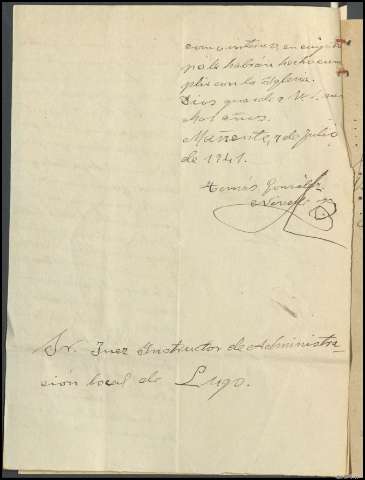 como interesa en cuyo
pó le habrán hecho cum
plir con la Iglesia.
Dios guarde a Vd. mu
chos años.
Mañente, 7 de julio
de 1941.
Tomás González
Sr. Juez Instructor de Administra-
ción local de Lugo.